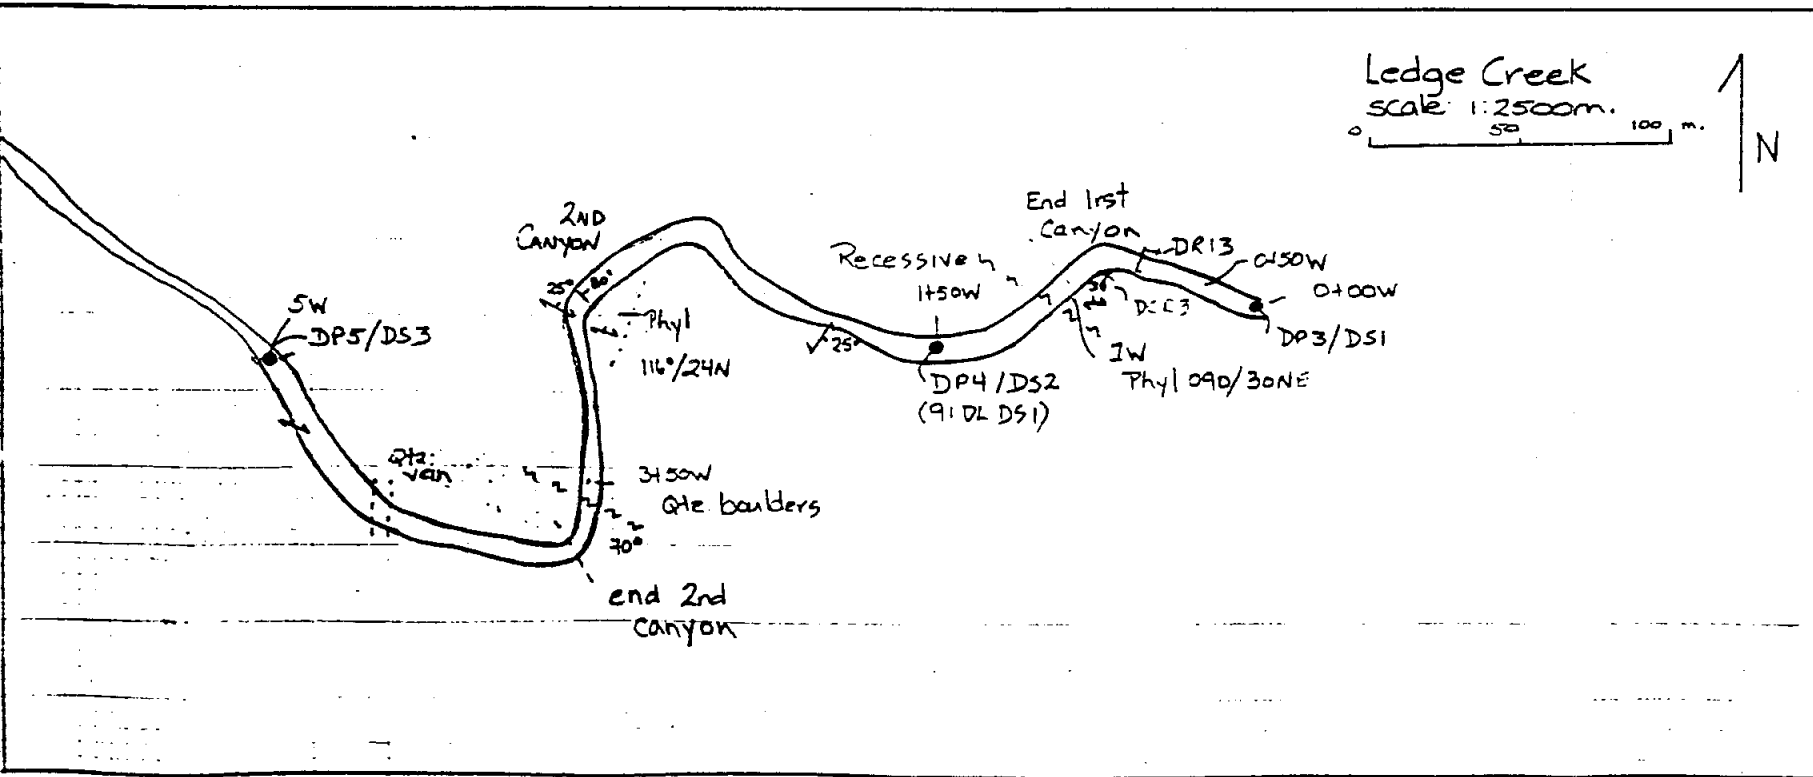 Ledge Creek
scale: 1:2500m.
0 50 100 m.
N
End 1rst
Canyon
DR13
0+50W
0+00W
DP3/DS1
Recessive
1+50W
30
1W
Phyl 090/30NE
DP4/DS2
(91DL DS1)
25°
2ND
CANYON
25°
80°
Phyl
116°/24N
5W
DP5/DS3
Qtz.
vein
3+50W
Qtz. boulders
70°
end 2nd
canyon